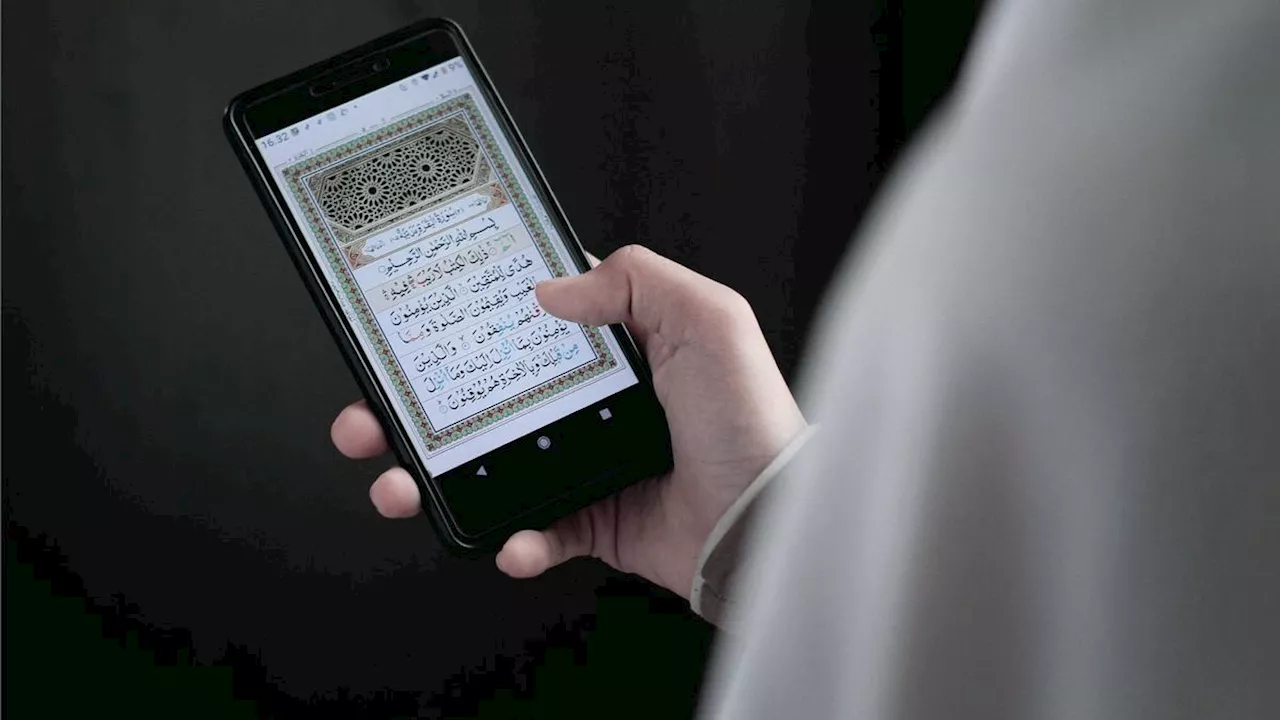 16:32 9%
سُوْرَةُ الْبَقَرَةِ
بِسْمِ اللّٰهِ الرَّحْمٰنِ الرَّحِيْمِ
الٓمّٓ ذٰلِكَ الْكِتٰبُ لَا رَيْبَ ۛ فِيْهِ ۛ
هُدًى لِّلْمُتَّقِيْنَ الَّذِيْنَ يُؤْمِنُوْنَ
وَيُقِيْمُوْنَ الصَّلٰوةَ وَمِمَّا
يُنْفِقُوْنَ وَالَّذِيْنَ
يُؤْمِنُوْنَ بِمَآ اُنْزِلَ اِلَيْكَ وَمَآ اُنْزِلَ
مِنْ قَبْلِكَ وَبِالْاٰخِرَةِ هُمْ يُوْقِنُوْنَ